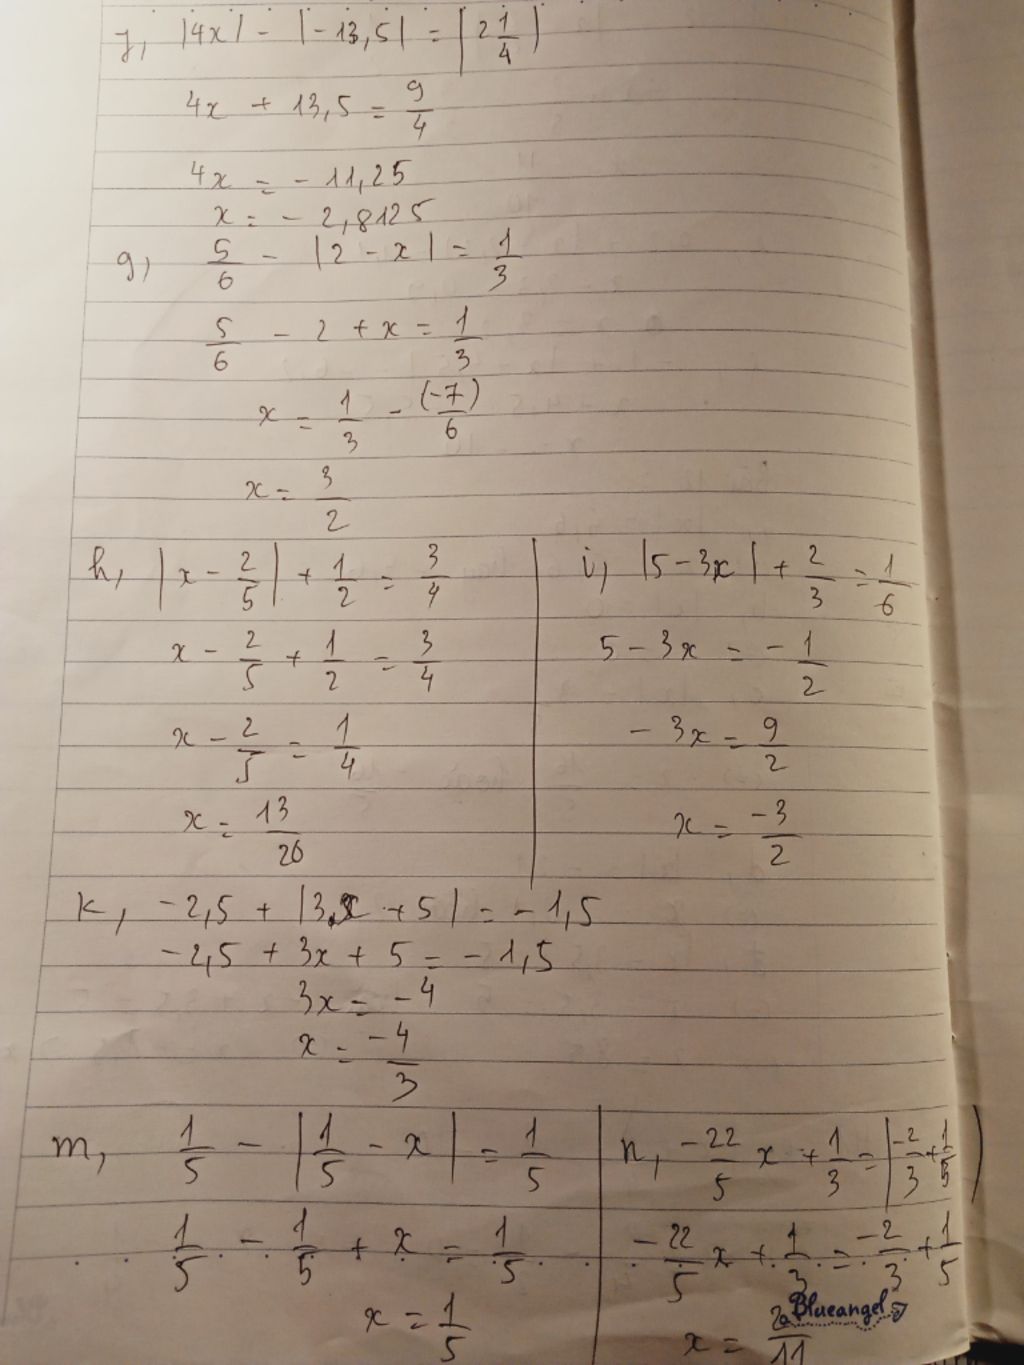 7, |4x| - |-13,5| = |2 1/4|
4x + 13,5 = 9/4
4x = - 11,25
x = - 2,8125
g, 5/6 - |2 - x| = 1/3
5/6 - 2 + x = 1/3
x = 1/3 - (-7)/6
x = 3/2
h, |x - 2/5| + 1/2 = 3/4
x - 2/5 + 1/2 = 3/4
x - 2/5 = 1/4
x = 13/20
i, |5 - 3x| + 2/3 = 1/6
5 - 3x = - 1/2
- 3x = 9/2
x = -3/2
k, -2,5 + |3x + 5| = - 1,5
-2,5 + 3x + 5 = - 1,5
3x = - 4
x = -4/3
m, 1/5 - |1/5 - x| = 1/5
1/5 - 1/5 + x = 1/5
x = 1/5
n, -22/5 x + 1/3 = |-2/3 + 1/5|
-22/5 x + 1/3 = -2/3 + 1/5
x = 2/11
Blueangel